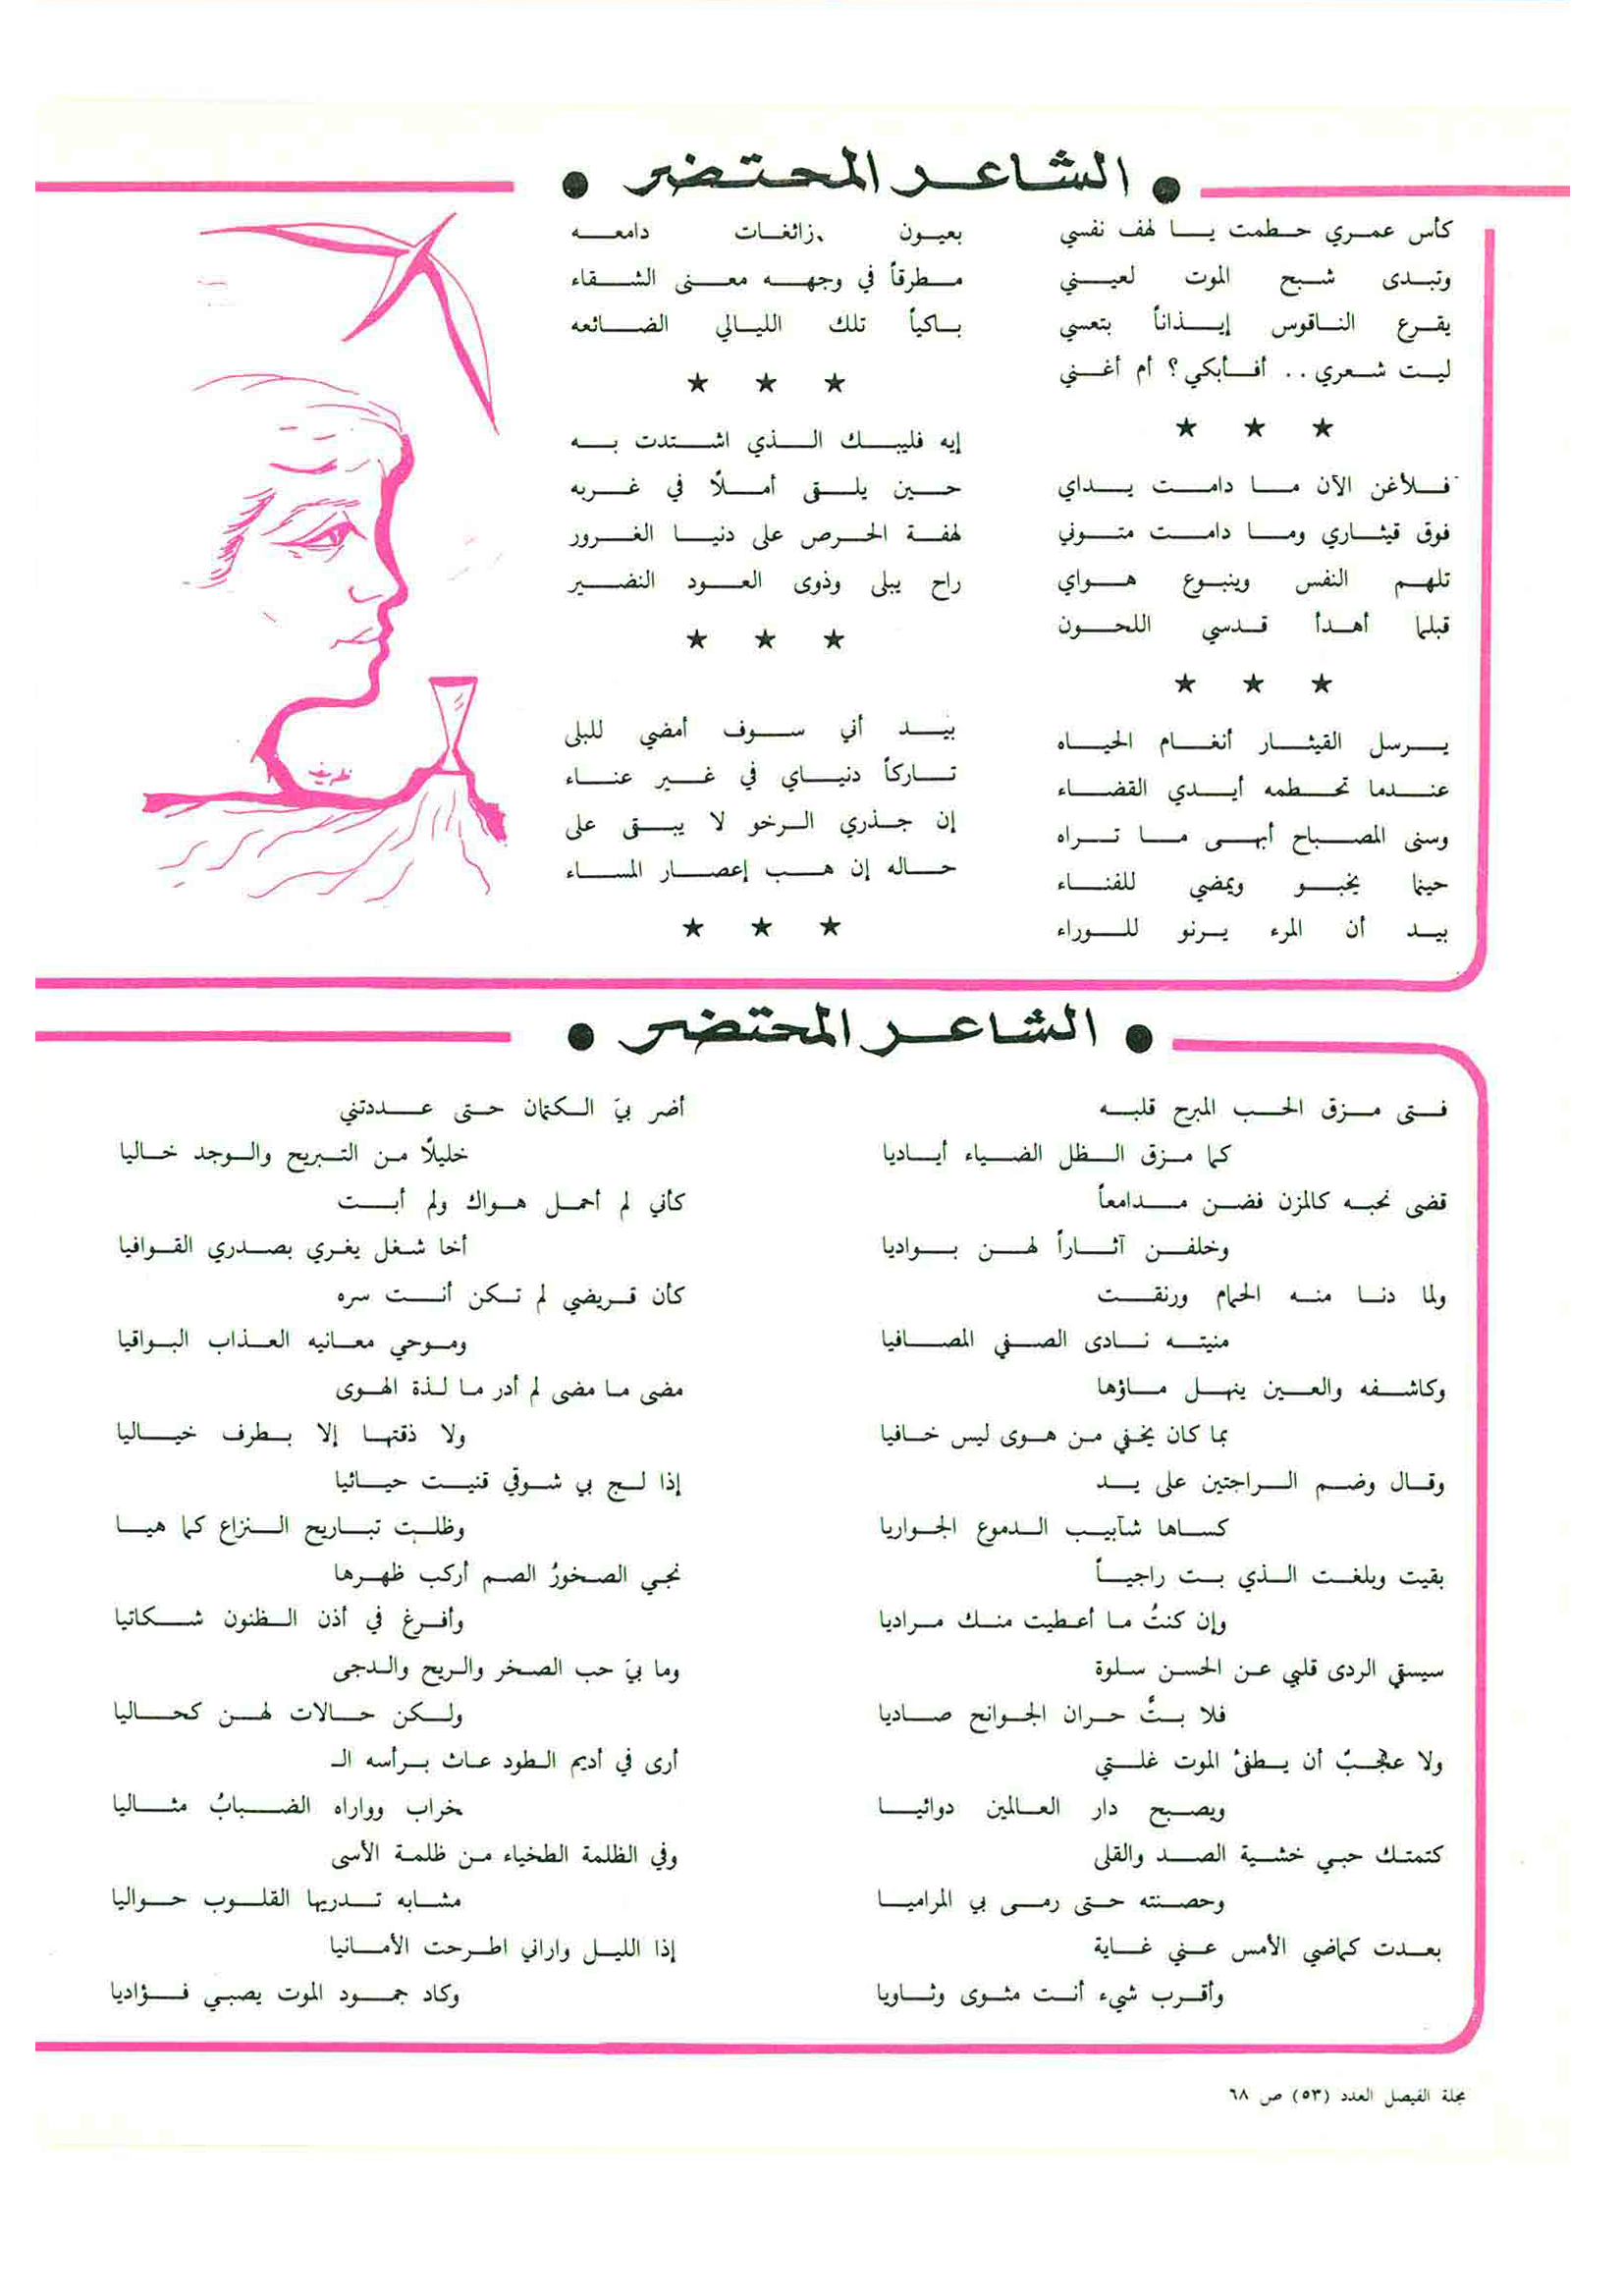 الشاعر المحتضر
كأس عمري حطمت يا لهف نفسي
وتبدى شبح الموت لعيني
يقرع الناقوس إيذاناً بتعسي
ليت شعري .. أفأبكي؟ أم أغني
★ ★ ★
فلأغن الآن ما دامت يداي
فوق قيثاري وما دامت متوني
تلهم النفس وينبوع هواي
قبلما أهدأ قدسي اللحون
★ ★ ★
يرسل القيثار أنغام الحياه
عندما تحطمه أيدي القضاء
وسنى المصباح أبهى ما تراه
حينما يخبو ويمضي للفناء
بيد أن المرء يرنو للوراء
بعيون زائغات دامعه
مطرقاً في وجهه معنى الشقاء
باكياً تلك الليالي الضائعه
★ ★ ★
إيه فليبك الذي اشتدت به
حين يلقى أملاً في غربه
لهفة الحرص على دنيا الغرور
راح يبلى وذوى العود النضير
★ ★ ★
بيد أني سوف أمضي للبلى
تاركاً دنياي في غير عناء
إن جذري الرخو لا يبقى على
حاله إن هب إعصار المساء
★ ★ ★
الشاعر المحتضر
فتى مزق الحب المبرح قلبه
كما مزق الظل الضياء أياديا
قضى نحبه كالمزن فضن مدامعاً
وخلفن آثاراً لهن بواديا
ولما دنا منه الحمام ورنقت
منيته نادى الصفي المصافيا
وكاشفه والعين ينهل ماؤها
بما كان يخفي من هوى ليس خافيا
وقال وضم الراجتين على يد
كساها شآبيب الدموع الجواريا
بقيت وبلغت الذي بت راجياً
وإن كنتُ ما أعطيت منك مراديا
سيسقي الردى قلبي عن الحسن سلوة
فلا بتُّ حران الجوانح صاديا
ولا عجبٌ أن يطفئ الموت غلتي
ويصبح دار العالمين دوائيا
كتمتك حبي خشية الصد والقلى
وحصنته حتى رمى بي المراميا
بعدت كماضي الأمس عني غاية
وأقرب شيء أنت مثوى وثاويا
أضر بيَ الكتمان حتى عددتني
خليلاً من التبريح والوجد خاليا
كأني لم أحمل هواك ولم أبت
أخا شغل يغري بصدري القوافيا
كأن قريضي لم تكن أنت سره
وموحي معانيه العذاب البواقيا
مضى ما مضى لم أدر ما لذة الهوى
ولا ذقتها إلا بطرف خياليا
إذا لج بي شوقي قنيت حيائيا
وظلت تباريح النزاع كما هيا
نجي الصخورُ الصم أركب ظهرها
وأفرغ في أذن الظنون شكاتيا
وما بيَ حب الصخر والريح والدجى
ولكن حالات لهن كحاليا
أرى في أديم الطود عاث برأسه الـ
خراب وواراه الضبابُ مثاليا
وفي الظلمة الطخياء من ظلمة الأسى
مشابه تدريها القلوب حواليا
إذا الليل واراني اطرحت الأمانيا
وكاد جمود الموت يصبي فؤاديا
مجلة الفيصل العدد (٥٣) ص ٦٨